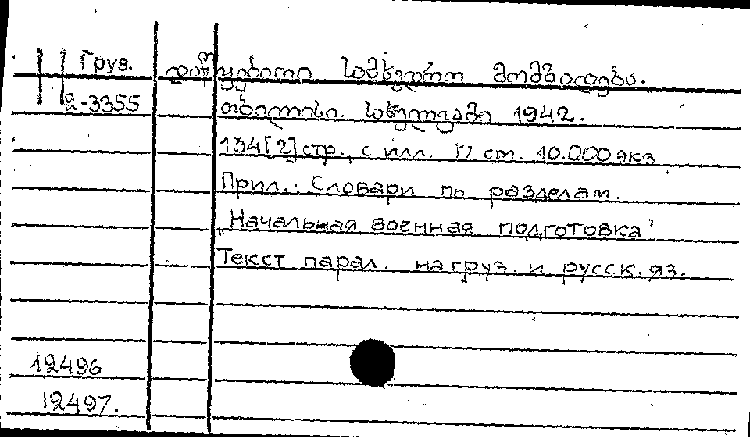 Груз. დაწყებითი სამხედრო მომზადება.
2-3355 თბილისი. სახელგამი 1942.
134[2] стр., с илл. 17 см. 10.000 экз
Прил.: Словари по разделам.
„Начальная военная подготовка"
Текст парал. на груз. и русск. яз.
12496
12497.